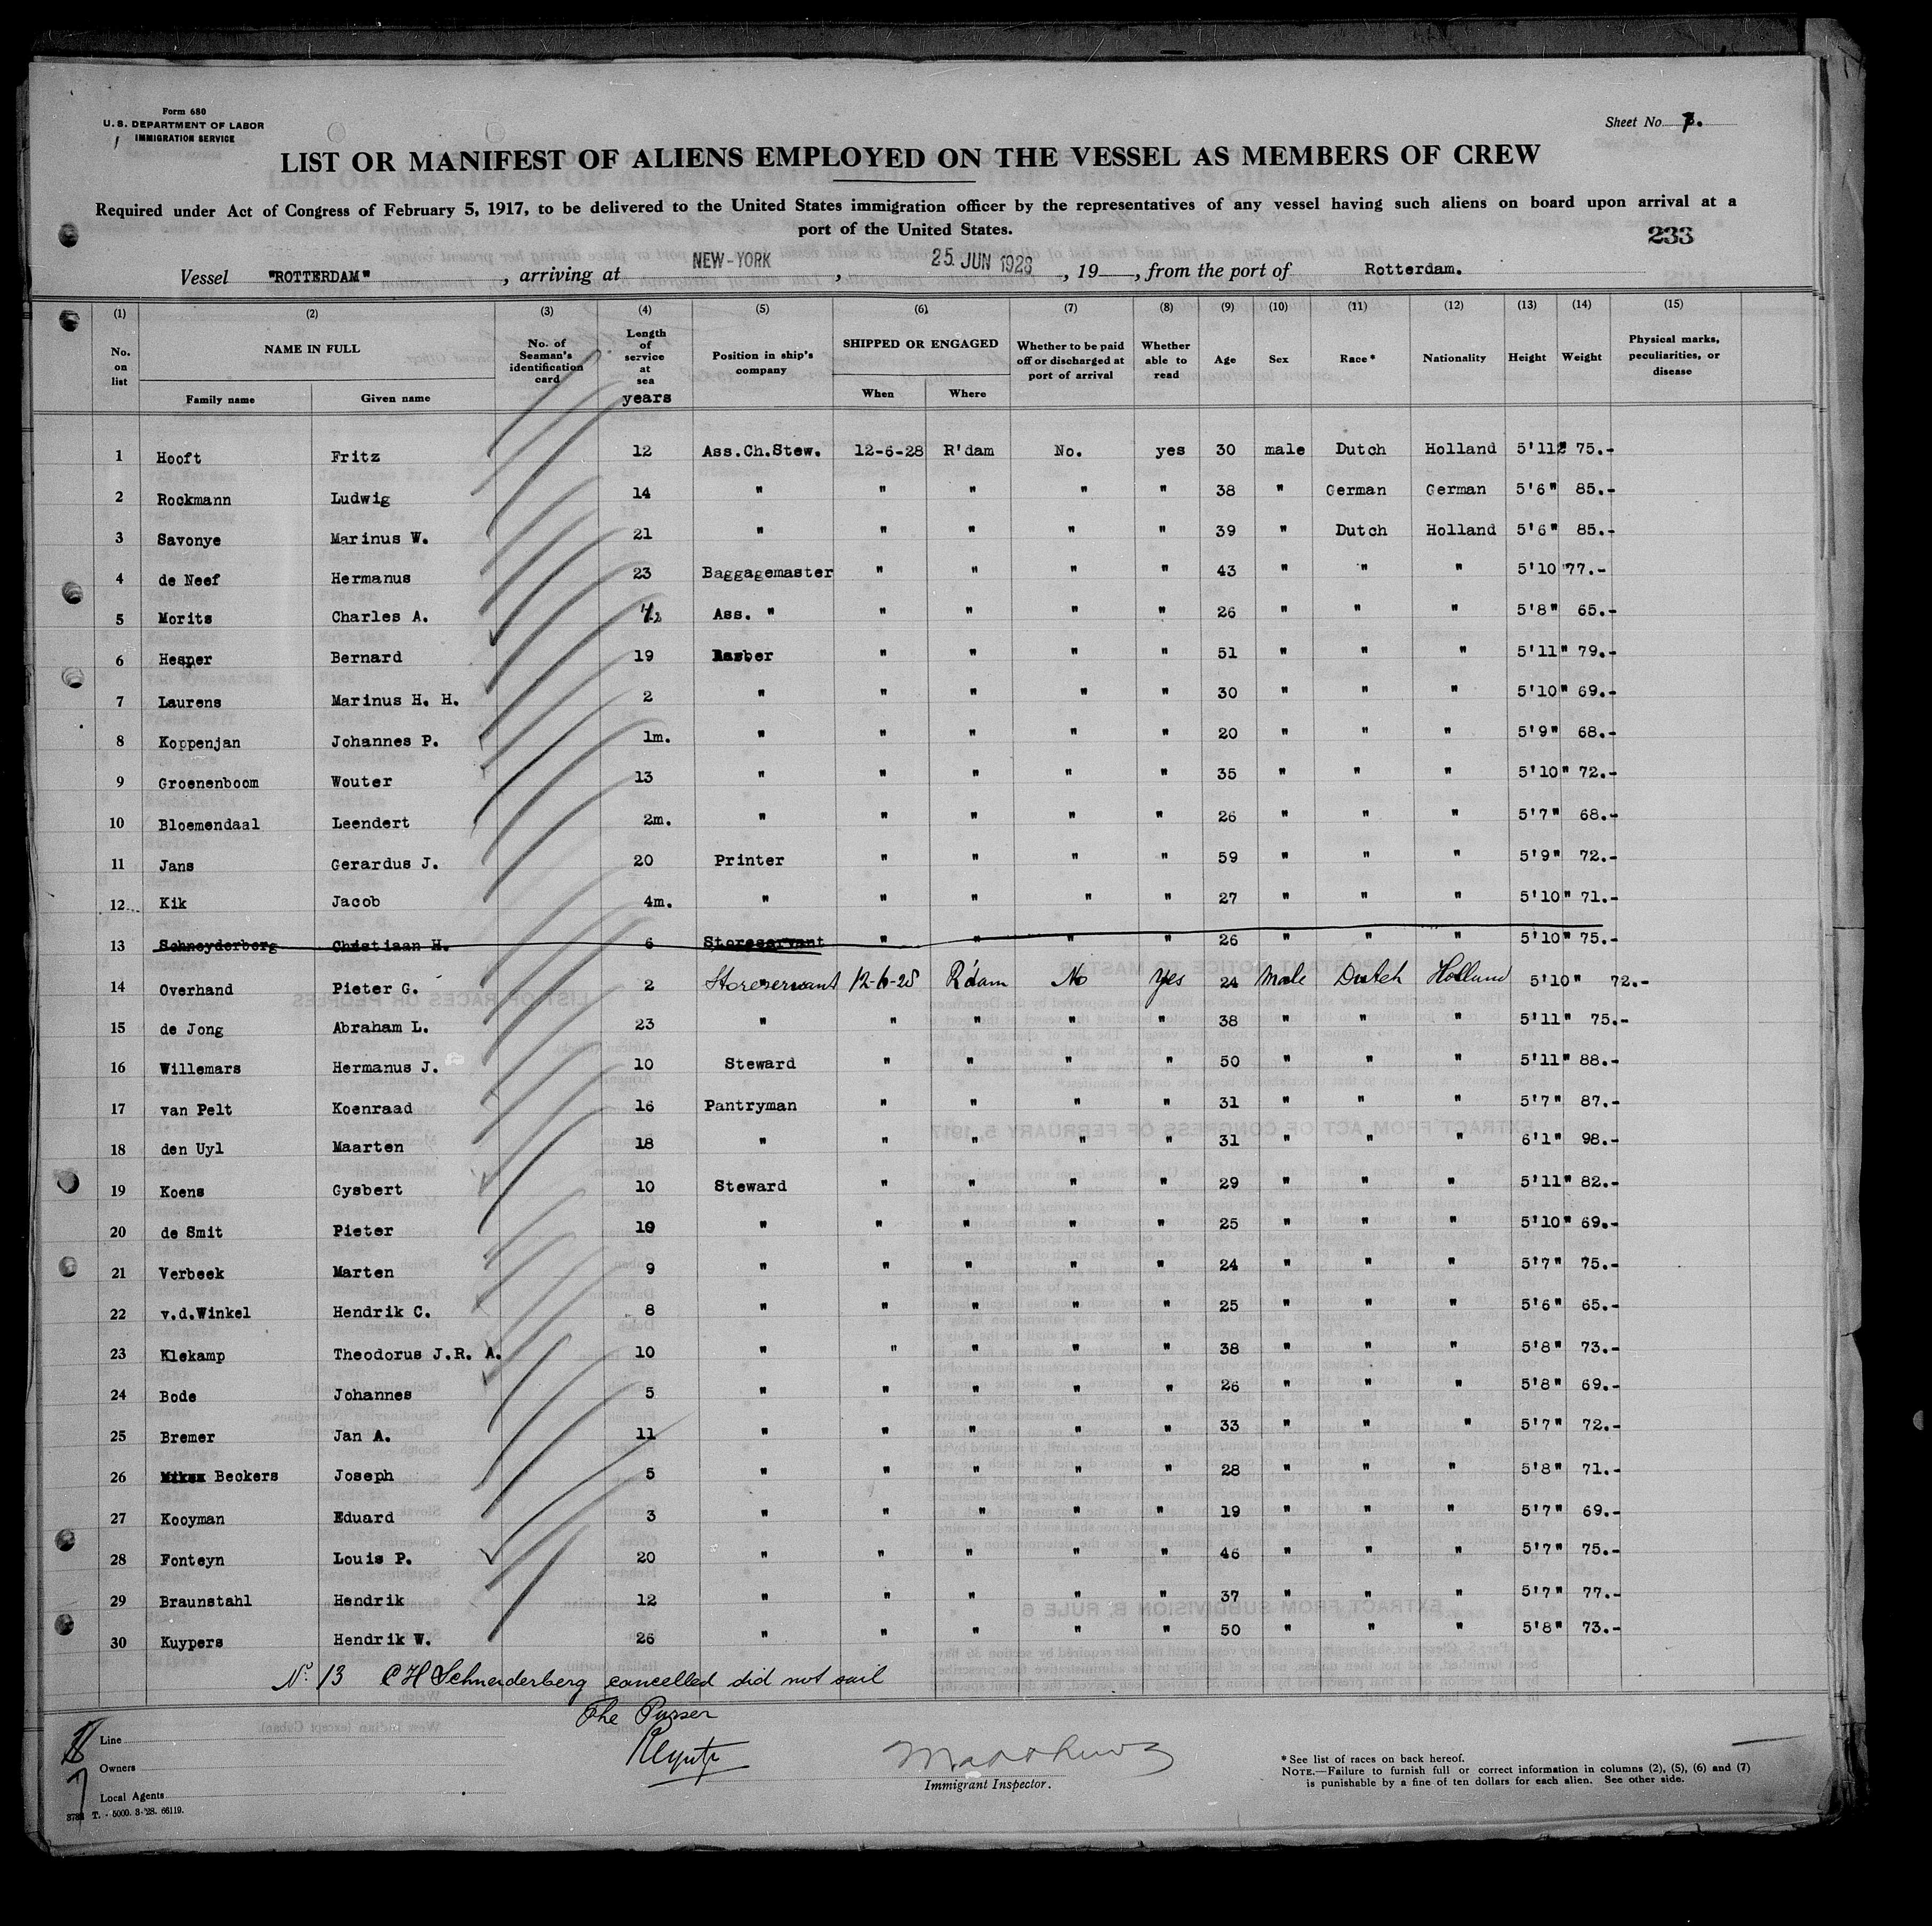 Form 680
U. S. DEPARTMENT OF LABOR
IMMIGRATION SERVICE
Sheet No. 7.
LIST OR MANIFEST OF ALIENS EMPLOYED ON THE VESSEL AS MEMBERS OF CREW
Required under Act of Congress of February 5, 1917, to be delivered to the United States immigration officer by the representatives of any vessel having such aliens on board upon arrival at a
port of the United States.
233
Vessel "ROTTERDAM", arriving at NEW-YORK, 25 JUN 1928, 19, from the port of Rotterdam.
(1) (2) (3) (4) (5) (6) (7) (8) (9) (10) (11) (12) (13) (14) (15)
No. on list NAME IN FULL Family name Given name No. of Seaman's identification card Length of service at sea years Position in ship's company SHIPPED OR ENGAGED When Where Whether to be paid off or discharged at port of arrival Whether able to read Age Sex Race* Nationality Height Weight Physical marks, peculiarities, or disease
1 Hooft Fritz 12 Ass.Ch.Stew. 12-6-28 R'dam No. yes 30 male Dutch Holland 5'11" 75.-
2 Rockmann Ludwig 14 " " " " " 38 " German German 5'6" 85.-
3 Savonye Marinus W. 21 " " " " " 39 " Dutch Holland 5'6" 85.-
4 de Neef Hermanus 23 Baggagemaster " " " " 43 " " " 5'10 "77.-
5 Morits Charles A. Ass. " " " " " 26 " " " 5'8" 65.-
6 Hesper Bernard 19 Barber " " " " 51 " " " 5'11" 79.-
7 Laurens Marinus H. H. 2 " " " " " 30 " " " 5'10" 69.-
8 Koppenjan Johannes P. 1m. " " " " " 20 " " " 5'9" 68.-
9 Groenenboom Wouter 13 " " " " " 35 " " " 5'10" 72.-
10 Bloemendaal Leendert 2m. " " " " " 26 " " " 5'7" 68.-
11 Jans Gerardus J. 20 Printer " " " " 59 " " " 5'9" 72.-
12 Kik Jacob 4m. " " " " " 27 " " " 5'10" 71.-
13 Schneyderberg Christiaan H. 6 Storeservant " " " " 26 " " " 5'10" 75.-
14 Overhand Pieter G. 2 Storeservant 12-6-28 R'dam No Yes 24 Male Dutch Holland 5'10" 72.-
15 de Jong Abraham L. 23 " " " " " 38 " " " 5'11" 75.-
16 Willemars Hermanus J. 10 Steward " " " " 50 " " " 5'11" 88.-
17 van Pelt Koenraad 16 Pantryman " " " " 31 " " " 5'7" 87.-
18 den Uyl Maarten 18 " " " " " 31 " " " 6'1" 98.-
19 Koens Gysbert 10 Steward " " " " 29 " " " 5'11" 82.-
20 de Smit Pieter 10 " " " " " 25 " " " 5'10" 69.-
21 Verbeek Marten 9 " " " " " 24 " " " 5'7" 75.-
22 v.d.Winkel Hendrik C. 8 " " " " " 25 " " " 5'6" 65.-
23 Klekamp Theodorus J.R. A. 10 " " " " " 38 " " " 5'8" 73.-
24 Bode Johannes 5 " " " " " 26 " " " 5'8" 69.-
25 Bremer Jan A. 11 " " " " " 33 " " " 5'7" 72.-
26 Beckers Joseph 5 " " " " " 28 " " " 5'8" 71.-
27 Kooyman Eduard 3 " " " " " 19 " " " 5'7" 69.-
28 Fonteyn Louis P. 20 " " " " " 46 " " " 5'7" 75.-
29 Braunstahl Hendrik 12 " " " " " 37 " " " 5'7" 77.-
30 Kuypers Hendrik W. 26 " " " " " 50 " " " 5'8" 73.-
No. 13 C H Schneiderberg cancelled did not sail
The Purser
Line
Owners
Local Agents
T. - 5000. 3-'28. 66119.
Immigrant Inspector.
*See list of races on back hereof.
NOTE.—Failure to furnish full or correct information in columns (2), (5), (6) and (7)
is punishable by a fine of ten dollars for each alien. See other side.